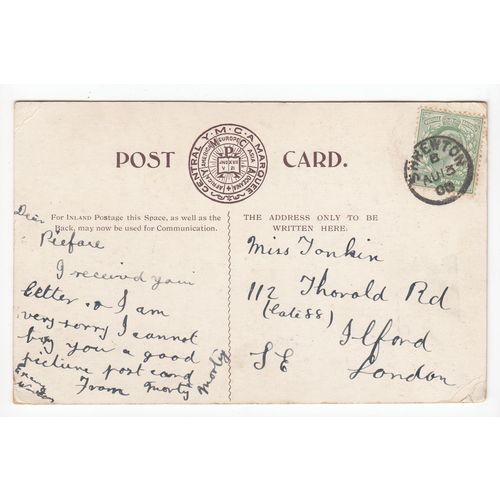 POST CARD.
CENTRAL Y.M.C.A. MARQUEE
FOR INLAND Postage this Space, as well as the
Back, may now be used for Communication.
THE ADDRESS ONLY TO BE
WRITTEN HERE.
SHREWTON
AU 31
09
Dear
Pieface
I received your
letter & I am
very sorry I cannot
buy you a good
picture post card
From Morty
Morty
Miss Tonkin
112 Thorold Rd
(late 88)
Ilford
S E
London